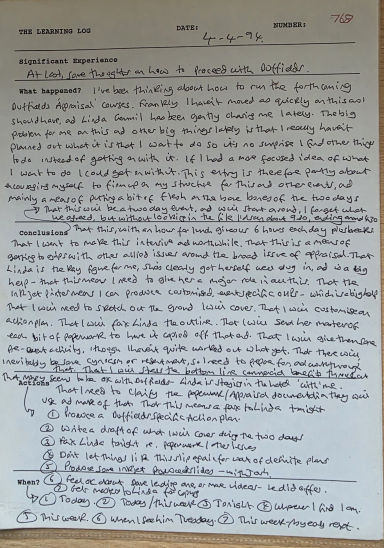 768
THE LEARNING LOG DATE: 4-4-94. NUMBER:
Significant Experience
At last, some thoughts on how to proceed with Duffields.
What happened? I've been thinking about how to run the forthcoming
Duffields Appraisal Courses. Frankly I haven't moved as quickly on this as I
should have, and Linda has been gently chasing me lately. The big
problem for me on this and other big things lately is that I really haven't
planned out what it is that I want to do so it's no surprise I find other things
to do instead of getting on with it. If I had a more focused idea of what
I want to do I could get on with it. This entry is therefore partly about
encouraging myself to firm up on my structure for this and other events, and
mainly a means of putting a bit of flesh on the bare bones of the two days
This will be a two day event, and will start around, I forget what
we agreed, but without looking in the file
Conclusions That this, with an hour for lunch gives us 6 hours each day plus breaks
That I want to make this intensive and worthwhile. That this is a means of
getting to grips with other allied issues around the broad issue of appraisal. That
Linda is the key figure for me, she's clearly got herself well dug in, and is a big
help - that this means I need to give her a major role in all this. That the
inkjet printer means I can produce customised, event specific ours - which is a big help
That I will need to sketch out the ground I will cover. That I will customise an
action plan. That I will fax Linda the outline. That I will send her masters of
each bit of paperwork to have it copied off that end. That I will give them some
pre-event activity, though I haven't quite worked out what yet. That there will
inevitably be some cynicism or resentment, so I need to prepare for and work through
that. That I will stress the bottom line commercial benefits throughout
That many seems to be ok with Duffields - Linda is staying in the hotel 'with' me.
Actions That I need to clarify the paperwork/Appraisal documentation they will
use and make of that. That this means a fax to Linda tonight
① Produce a Duffields Specific Action plan.
② Write a draft of what I will cover during the two days
③ Fax Linda tonight re. paperwork + other issues
④ Don't let things like this slip again for want of definite plans
⑤ Produce some inkjet slides - with Josh
When? ⑥ about some or more videos - he did offer.
⑦ Get masters to Linda for copying
① Today. ② Today/this week ③ Tonight ④ Wherever I find I am.
⑤ This week. ⑥ When I see him Tuesday. ⑦ This week